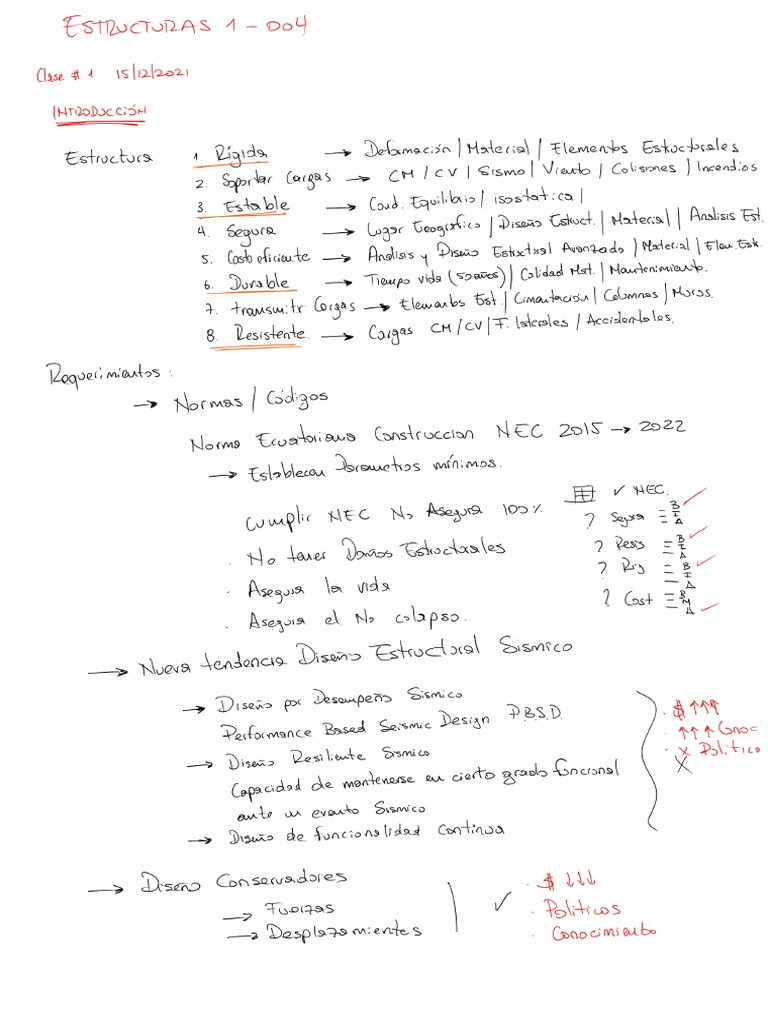 ESTRUCTURAS 1 - 004
Clase # 1 15/12/2021
INTRODUCCIÓN
Estructura 1. Rígida → Deformación / Material / Elementos Estructorales
2. Soportar Cargas → CM / CV / Sismo / Viento / Colisiones / Incendios
3. Estable → Cond. Equilibrio / isostatica /
4. Segura → Lugar Geografico / Diseño Estruct. / Material / Analisis Est.
5. Costo eficiente → Analisis y Diseño Estructural Avanzado / Material / Elem. Estr.
6. Durable → Tiempo vida (50años) / Calidad Mat. / Mantenimiento.
7. transmitir Cargas → Elementos Est. / Cimentación / Columnas / Muros.
8. Resistente → Cargas CM / CV / F. laterales / Accidentales.
Requerimientos :
→ Normas / Códigos
Norma Ecuatoriana Construccion NEC 2015 → 2022
→ Establecen Parametros mínimos.
Cumplir NEC No Asegura 100%
· No tener Daños Estructorales
· Asegura la vida
· Asegura el No colapso.
✓ NEC.
? Segura = B I A ✓
? Resis = B I A ✓
? Rig = B I A ✓
? Cost = B M A ✓
→ Nueva tendencia Diseño Estructoral Sismico
→ Diseño por Desempeño Sismico
Performance Based Seismic Design P.B.S.D.
→ Diseño Resiliente Sismico
Capacidad de mantenerse en cierto grado funcional
ante un evento Sismico
→ Diseño de funcionalidad Continua
· $ ↑↑↑
· ↑↑↑ Conoc
· x Politico
X
→ Diseño Conservadores
→ Fuerzas
→ Desplazamientes
✓
· $ ↓↓↓
· Politicos
· Conocimiento